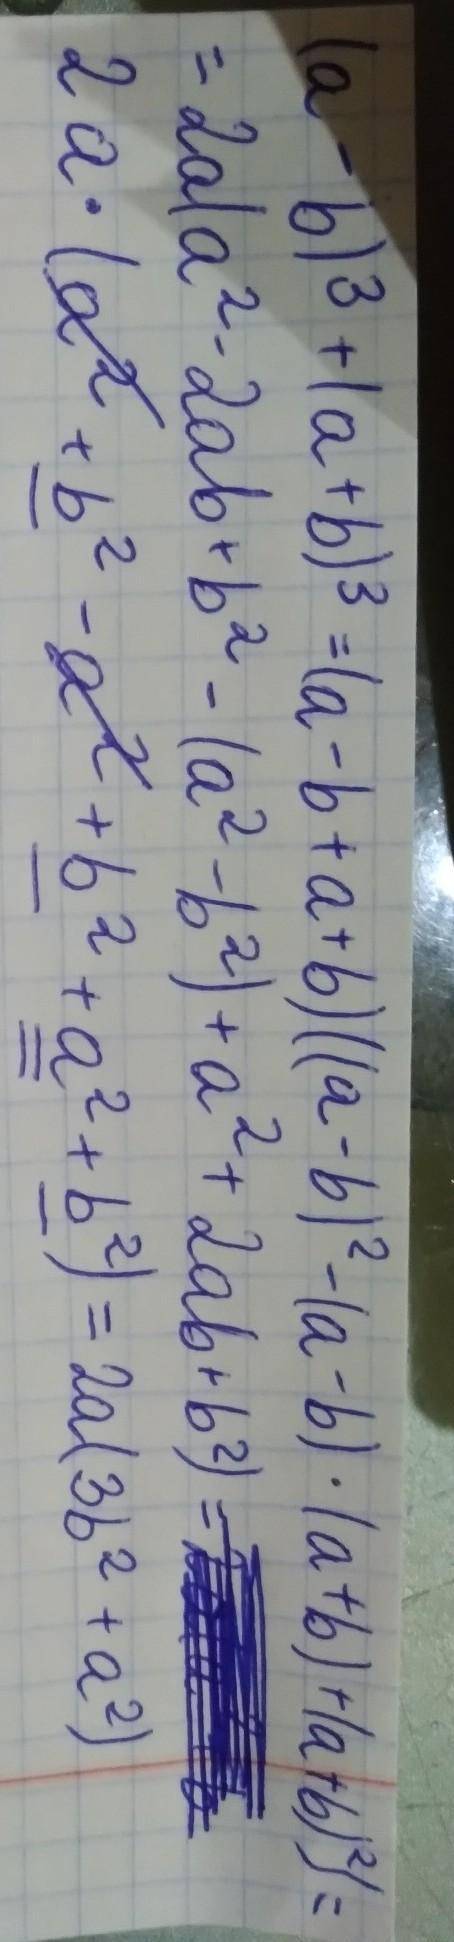 (a - b)³ + (a + b)³ = (a - b + a + b)((a - b)² - (a - b) · (a + b) + (a + b)²) =
= 2a(a² - 2ab + b² - (a² - b²) + a² + 2ab + b²) =
2a · (a² + b² - a² + b² + a² + b²) = 2a(3b² + a²)